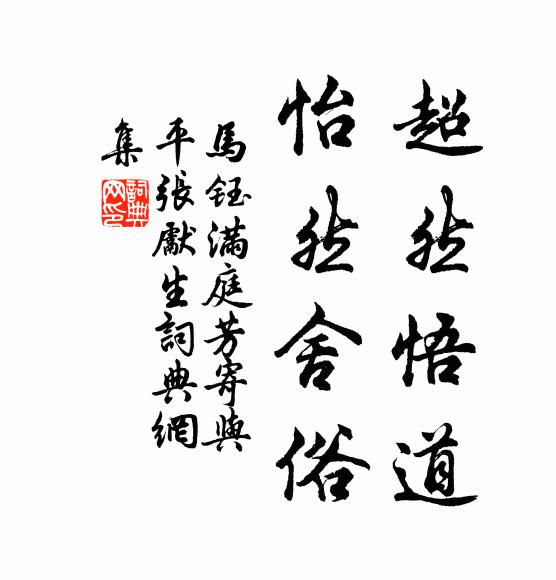 超然悟道
怡然舍俗
馬鈺滿庭芳寄與
平張獻生詞典網
集
詞典
网印